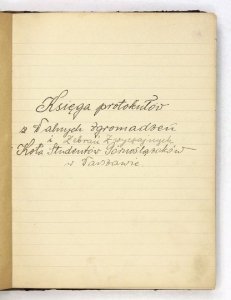 Księga protokułów
z Walnych zgromadzeń
i Zebrań Zwyczajnych
Koła Studentów Górnoślązaków
w Warszawie